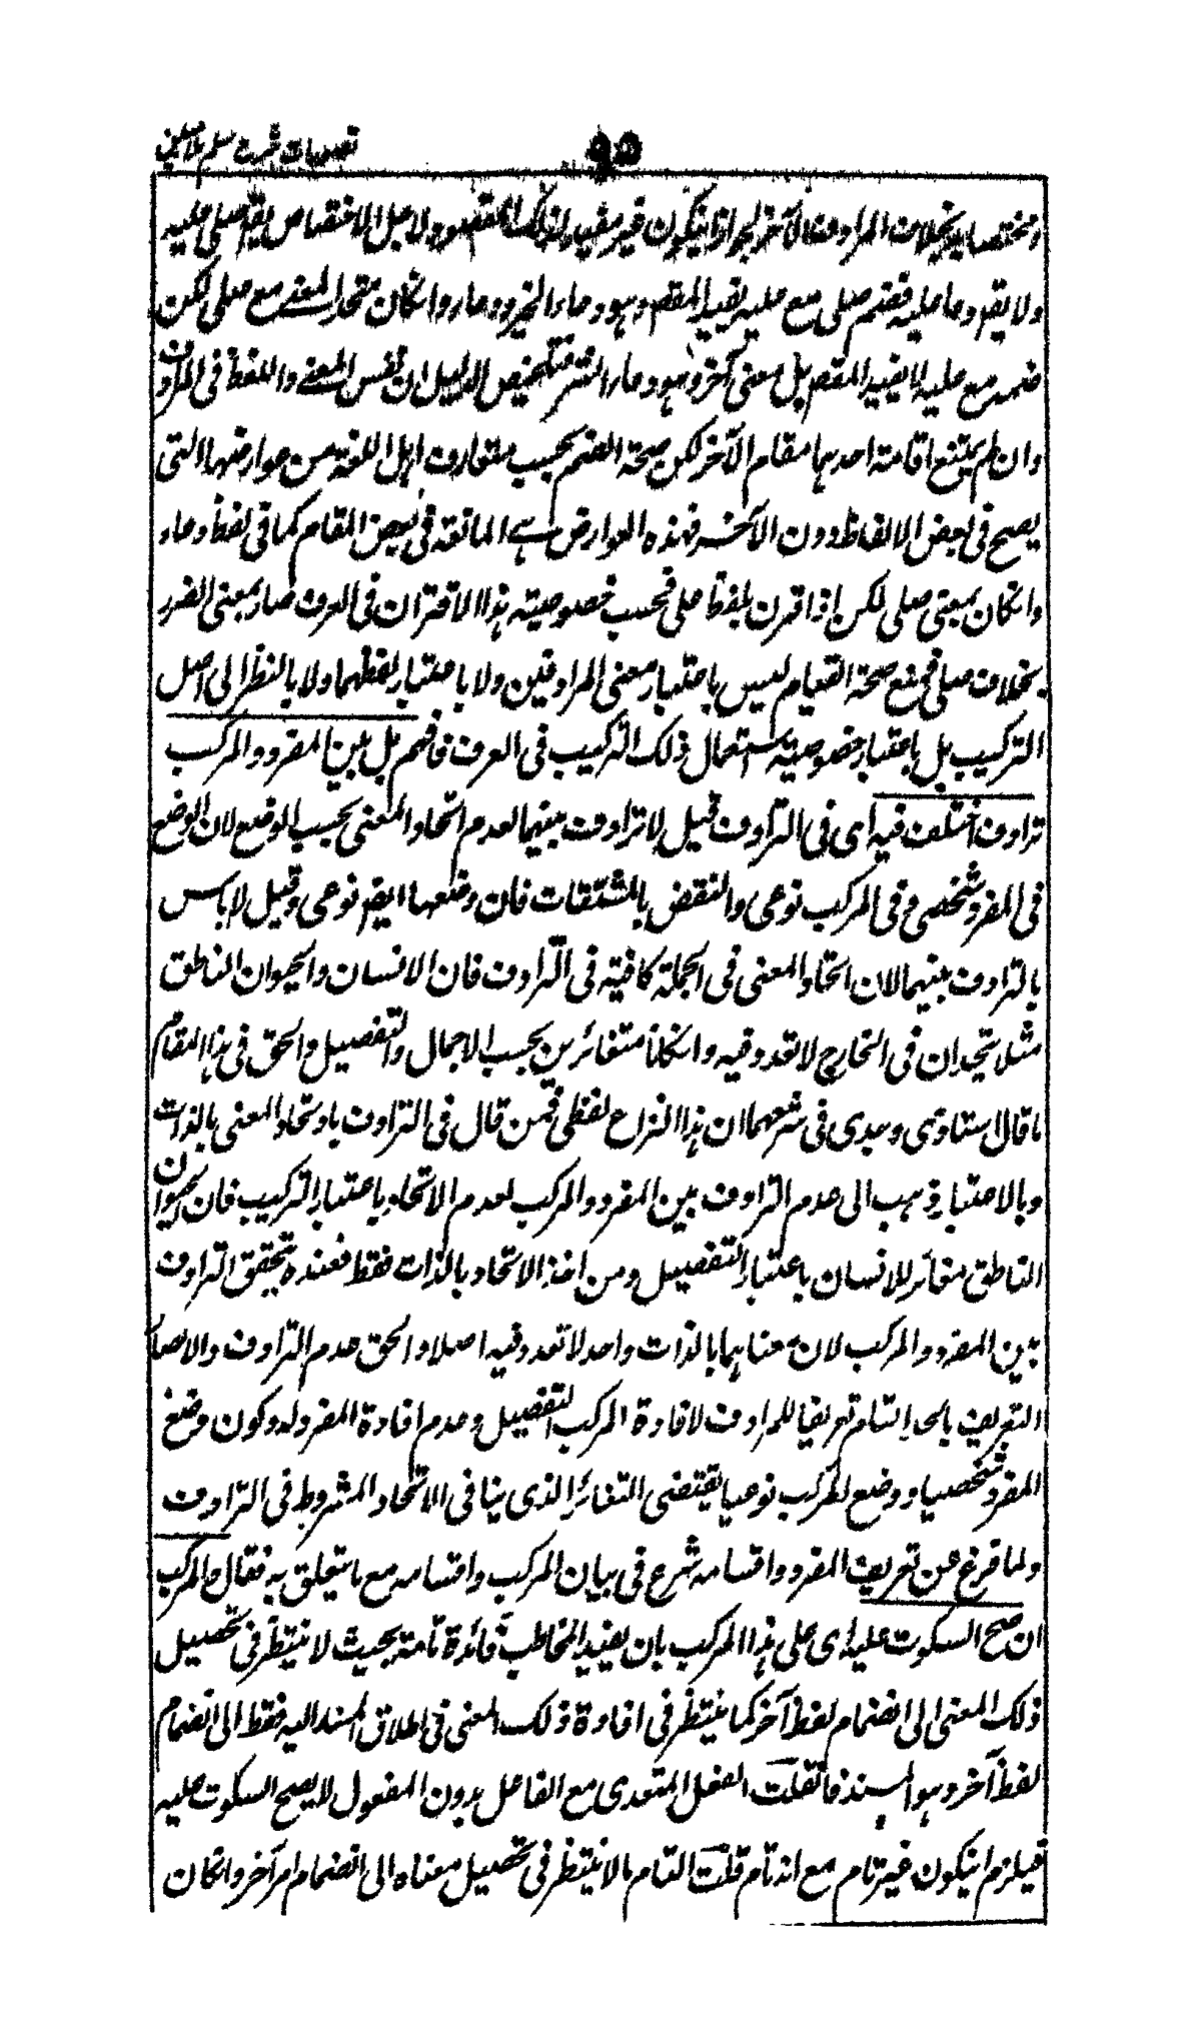 تصورات شرح سلم ملا مبين
٩٥
ومختصا به بخلاف المرادف الآخر لجواز ان يكون غير مفيد لذلك المقصود لاجل الاختصاص يقم صلى عليه
ولا يقم دعا عليه فضم صلى مع عليه يفيد المقصم وهو دعاء الخير ودعا وان كان متحد المعنے مع صلى لكن
ضمه مع عليه لا يفيد المقصم بل معنى آخر وهو دعاء الشر فتلخيص الدليل ان نفس المعنے واللفظ فى المرادف
وان لم يمتنع اقامة احدهما مقام الآخر لكن صحة الضم بحسب متعارف اهل اللغة من عوارضها التى
يصح فى بعض الالفاظ دون الآخر فهذه العوارض هے المانعة فى بعض المقام كما فى لفظ دعاء
وان كان بمعنى صلى لكن اذا قرن بلفظ على فحسب خصوصية هذا الاقتران فى العرف صار بمعنى الضرر
بخلاف صلى فمنع صحة القيام ليس باعتبار معنى المرادفين ولا باعتبار لفظهما ولا بالنظر الى اصل
التركيب بل باعتبار خصوصية استعمال ذلك التركيب فى العرف فافهم بل بين المفرد والمركب
ترادف اختلف فيه اى فى الترادف فقيل لا ترادف بينهما لعدم اتحاد المعنى بحسب الوضع لان الوضع
فى المفرد شخصى وفى المركب نوعى والنقض بالمشتقات فان وضعها ايضم نوعى وقيل لا باس
بالترادف بينهما لان اتحاد المعنى فى الجملة كافية فى الترادف فان الانسان والحيوان الناطق
مثلا يتحدان فى الخارج لا تعدد فيه وان كانا متغائرين بحسب الاجمال والتفصيل والحق فى هذا المقام
ما قال استاذى وجدى فى شرحهما ان هذا النزاع لفظى فمن قال فى الترادف باتحاد المعنى بالذات
وبالاعتبار ذهب الى عدم الترادف بين المفرد والمركب لعدم الاتحاد باعتبار التركيب فان الحيوان
الناطق مغائر للانسان باعتبار التفصيل ومن اخذ الاتحاد بالذات فقط فعنده تحقق الترادف
بين المفرد والمركب لان معناهما بالذات واحد لا تعدد فيه اصلا والحق عدم الترادف والا صار
التعريف بالحد التام تعريفا للمرادف لافادة المركب التفصيل وعدم افادة المفرد له وكون وضع
المفرد شخصيا ووضع المركب نوعيا يقتضى التغائر الذى ينافى الاتحاد المشروط فى الترادف
ولما فرغ عن تعريف المفرد واقسامه شرع فى بيان المركب واقسامه مع ما يتعلق به فقال والمركب
ان صح السكوت عليه اى على هذا المركب بان يفيد المخاطب فائدة تامة بحيث لا ينتظر فى تحصيل
ذلك المعنى الى انضمام لفظ آخر كما ينتظر فى افادة ذلك المعنى فى اطلاق المسند اليه فقط الى انضمام
لفظ آخر وهو المسند فان قلت الفعل المتعدى مع الفاعل بدون المفعول لا يصح السكوت عليه
فيلزم ان يكون غير تام مع انه تام قلت التام ما لا ينتظر فى تحصيل معناه الى انضمام امر آخر وان كان